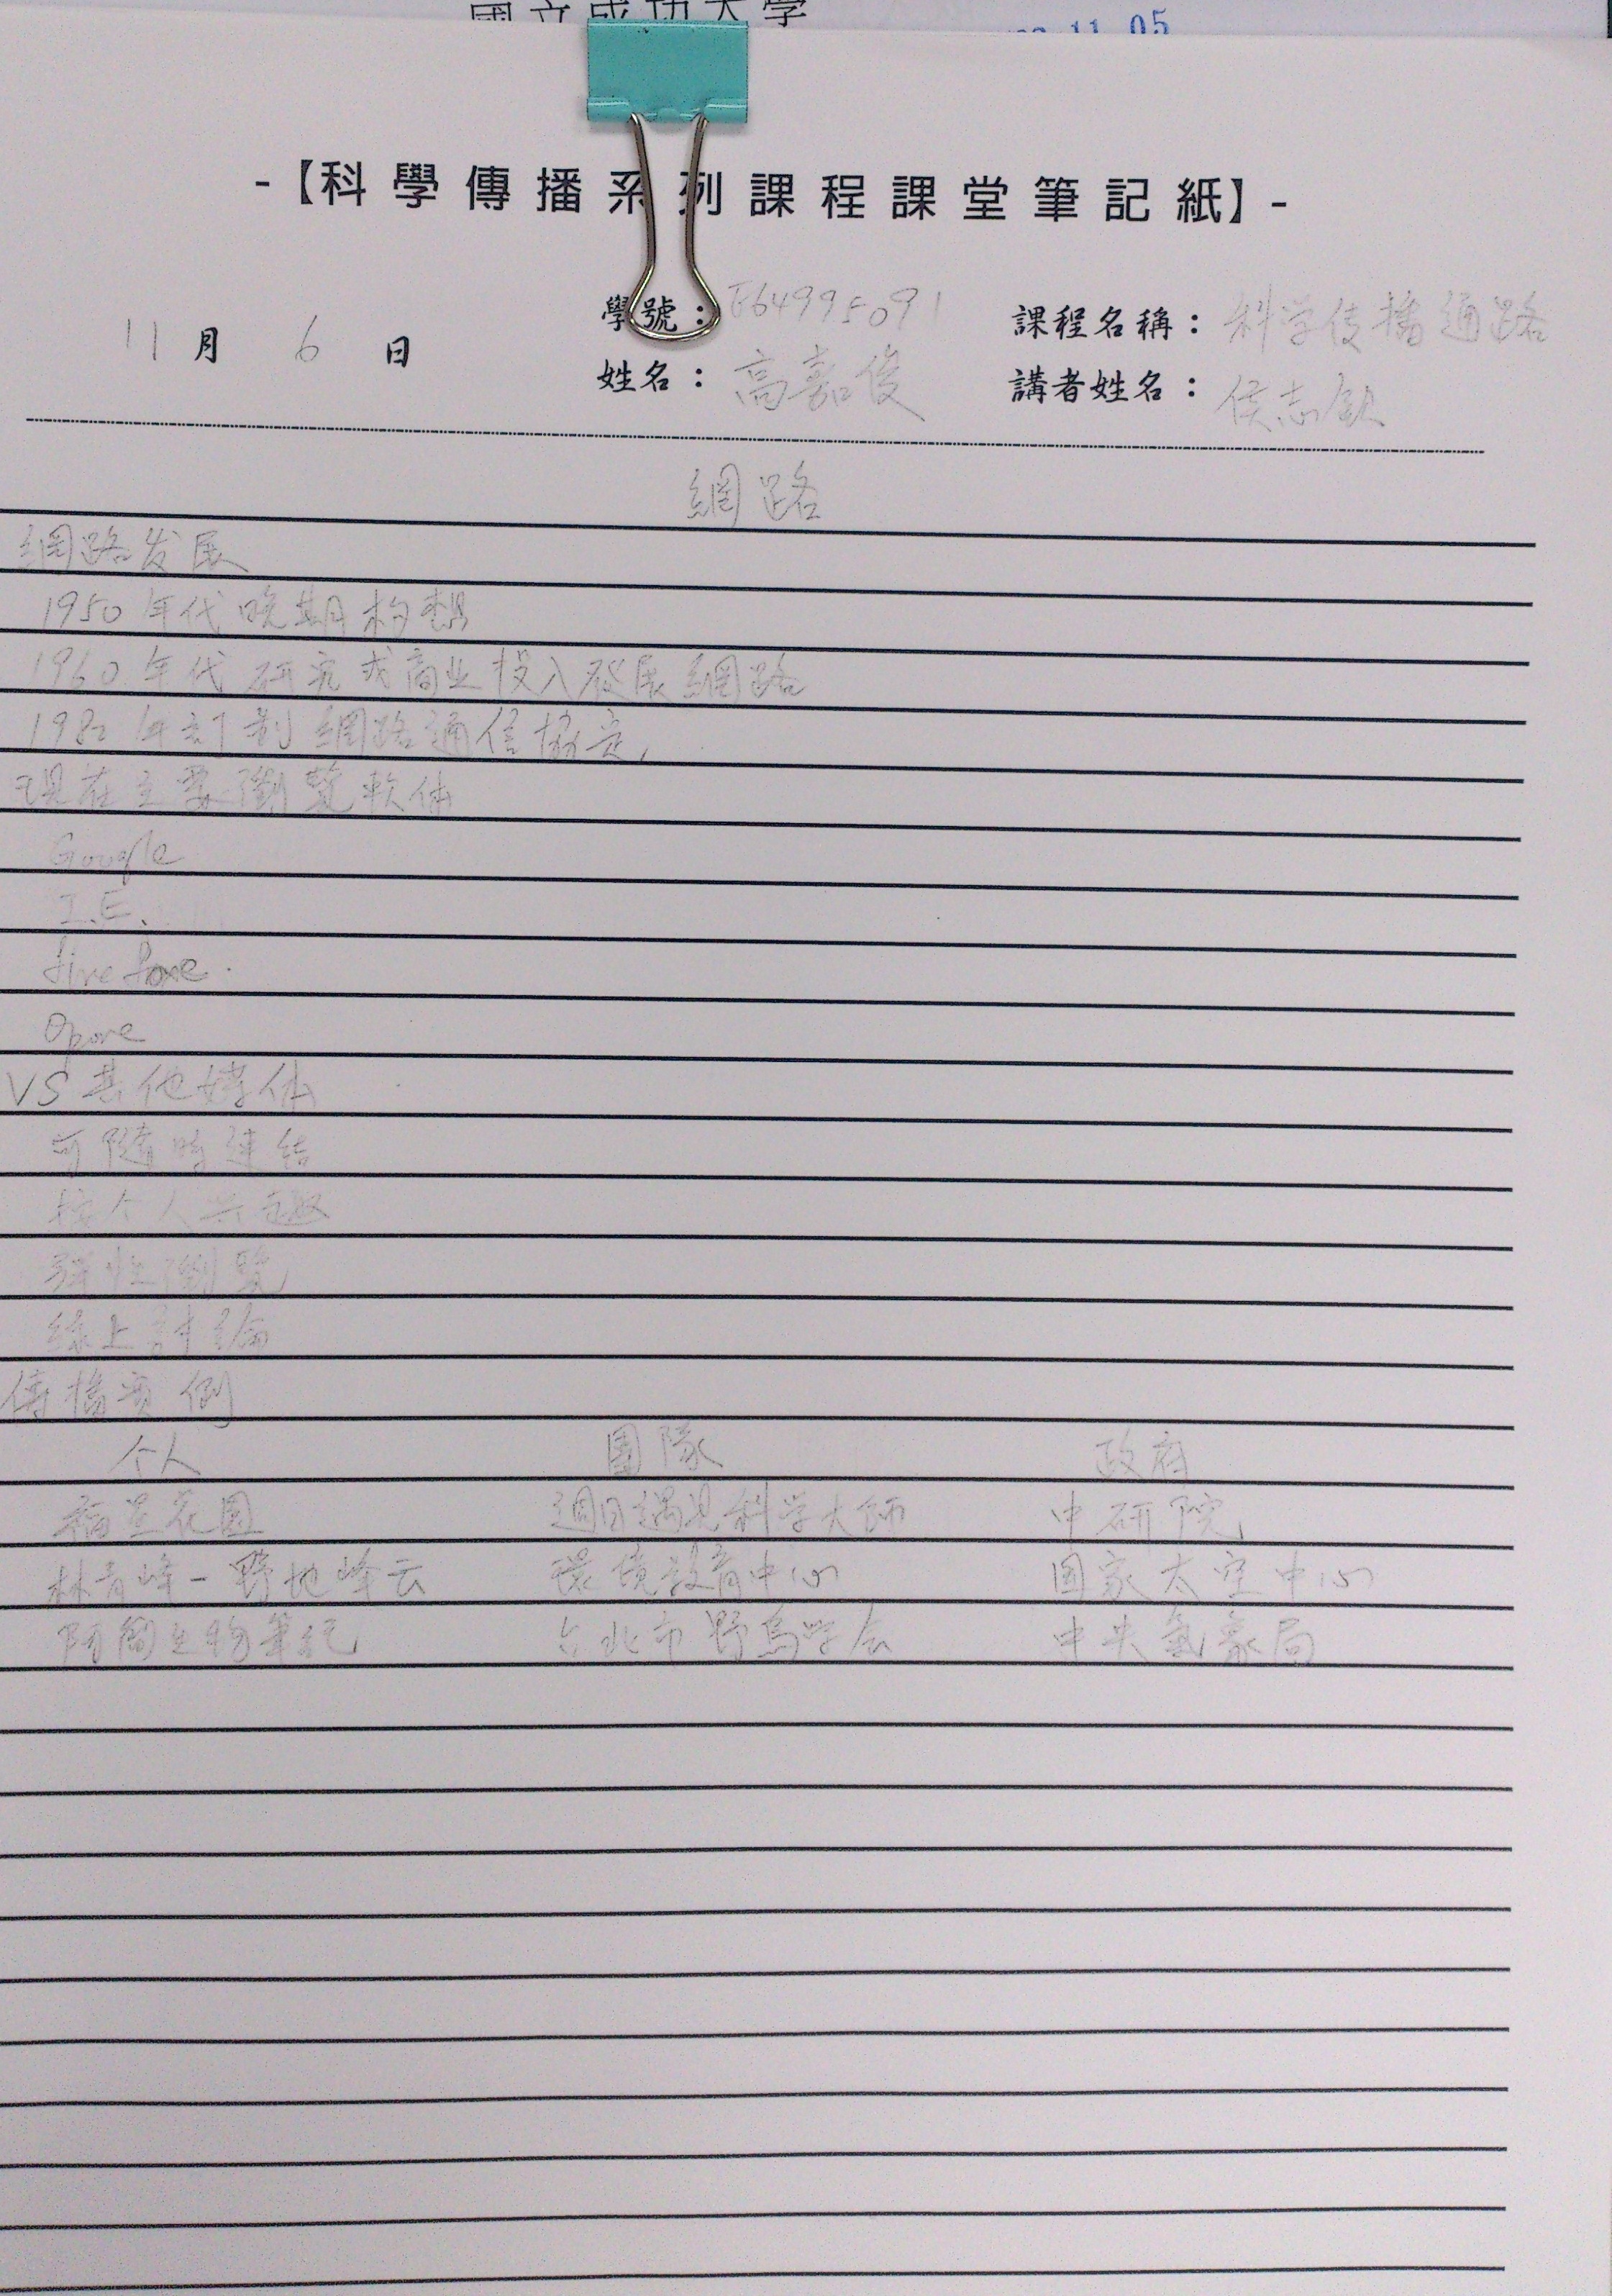 國立成功大學
11. 05
-【科學傳播系列課程課堂筆記紙】-
學號：E64995091 課程名稱：科学传播通路
11月 6 日
姓名：高嘉俊 講者姓名：侯志欽
網路
網路发展
1950年代晚期构想
1960年代研究或商业投入發展網路
1982年訂制網路通信協定,
現在主要瀏覽軟体
Google
I.E.
firefoxe.
Opore
VS其他媒体
可隨時連結
按个人兴趣
弹性瀏覽
線上討論
傳播實例
个人 團隊 政府
福星花園 週日遇見科学大師 中研院
林青峰-野地峰云 環境教育中心 国家太空中心
阿簡生物筆記 台北市野鳥学会 中央氣象局